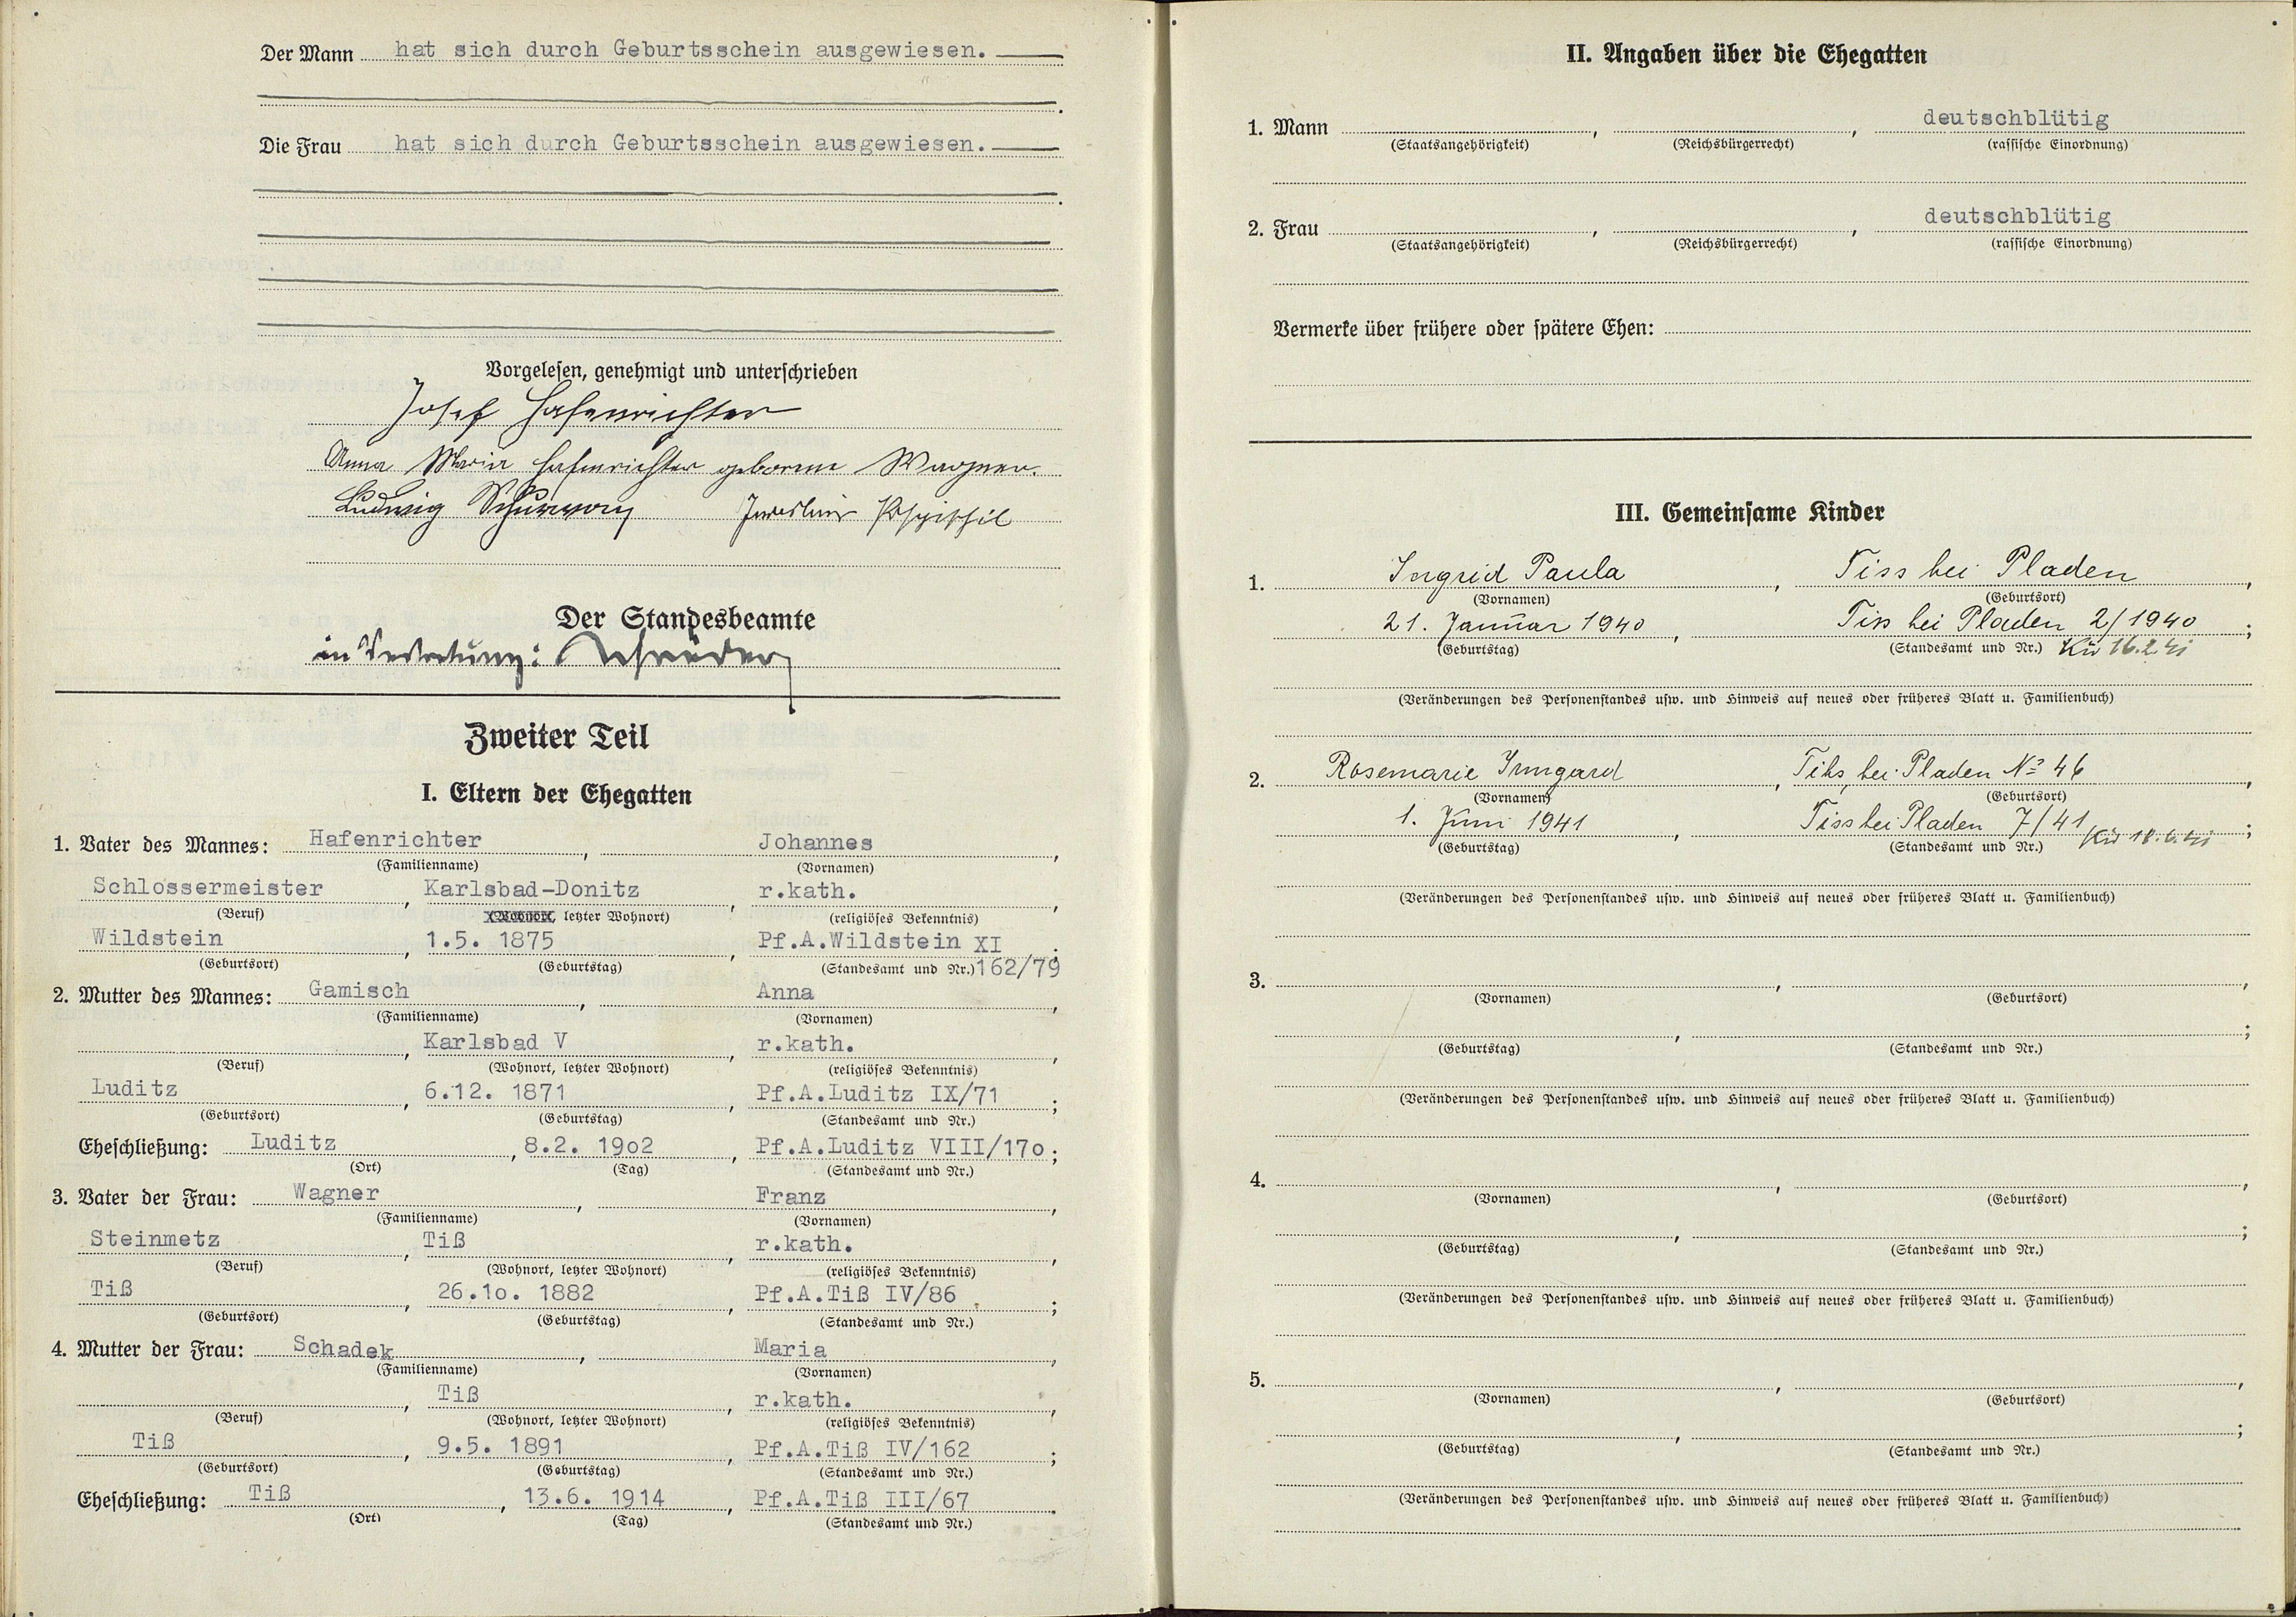 Der Mann hat sich durch Geburtsschein ausgewiesen.
Die Frau hat sich durch Geburtsschein ausgewiesen.
Vorgelesen, genehmigt und unterschrieben
Josef Hafenrichter
Anna Maria Hafenrichter geborene Wagner.
Ludwig
Der Standesbeamte
in Vertretung:
Zweiter Teil
I. Eltern der Ehegatten
1. Vater des Mannes: Hafenrichter, Johannes,
(Familienname) (Vornamen)
Schlossermeister, Karlsbad-Donitz r.kath.,
(Beruf) (Wohnort, letzter Wohnort) (religiöses Bekenntnis)
Wildstein, 1.5. 1875, Pf.A.Wildstein XI;
(Geburtsort) (Geburtstag) (Standesamt und Nr.) 162/79
2. Mutter des Mannes: Gamisch, Anna,
(Familienname) (Vornamen)
, Karlsbad V, r.kath.,
(Beruf) (Wohnort, letzter Wohnort) (religiöses Bekenntnis)
Luditz, 6.12. 1871, Pf.A.Luditz IX/71;
(Geburtsort) (Geburtstag) (Standesamt und Nr.)
Eheschließung: Luditz, 8.2. 19o2, Pf.A.Luditz VIII/17o;
(Ort) (Tag) (Standesamt und Nr.)
3. Vater der Frau: Wagner, Franz,
(Familienname) (Vornamen)
Steinmetz, Tiß, r.kath.,
(Beruf) (Wohnort, letzter Wohnort) (religiöses Bekenntnis)
Tiß, 26.1o. 1882, Pf.A.Tiß IV/86;
(Geburtsort) (Geburtstag) (Standesamt und Nr.)
4. Mutter der Frau: Schadek, Maria,
(Familienname) (Vornamen)
, Tiß, r.kath.,
(Beruf) (Wohnort, letzter Wohnort) (religiöses Bekenntnis)
Tiß, 9.5. 1891, Pf.A.Tiß IV/162;
(Geburtsort) (Geburtstag) (Standesamt und Nr.)
Eheschließung: Tiß, 13.6. 1914, Pf.A.Tiß III/67.
(Ort) (Tag) (Standesamt und Nr.)
II. Angaben über die Ehegatten
1. Mann , , deutschblütig
(Staatsangehörigkeit) (Reichsbürgerrecht) (rassische Einordnung)
2. Frau , , deutschblütig
(Staatsangehörigkeit) (Reichsbürgerrecht) (rassische Einordnung)
Vermerke über frühere oder spätere Ehen:
III. Gemeinsame Kinder
1. Ingrid Paula, Tiss bei Pladen,
(Vornamen) (Geburtsort)
21. Januar 1940, Tiss bei Pladen 2/1940;
(Geburtstag) (Standesamt und Nr.) Kü 16.2.41
(Veränderungen des Personenstandes usw. und Hinweis auf neues oder früheres Blatt u. Familienbuch)
2. Rosemarie Irmgard, Tihs, bei Pladen № 46,
(Vornamen) (Geburtsort)
1. Juni 1941, Tiss bei Pladen 7/41 Kü 18.6.41;
(Geburtstag) (Standesamt und Nr.)
(Veränderungen des Personenstandes usw. und Hinweis auf neues oder früheres Blatt u. Familienbuch)
3. , ,
(Vornamen) (Geburtsort)
, ;
(Geburtstag) (Standesamt und Nr.)
(Veränderungen des Personenstandes usw. und Hinweis auf neues oder früheres Blatt u. Familienbuch)
4. , ,
(Vornamen) (Geburtsort)
, ;
(Geburtstag) (Standesamt und Nr.)
(Veränderungen des Personenstandes usw. und Hinweis auf neues oder früheres Blatt u. Familienbuch)
5. , ,
(Vornamen) (Geburtsort)
, ;
(Geburtstag) (Standesamt und Nr.)
(Veränderungen des Personenstandes usw. und Hinweis auf neues oder früheres Blatt u. Familienbuch)